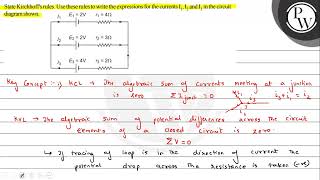 State Kirchhoff's rules. Use these rules to write the expressions for the currents I₁, I₂ and I₃ in the circuit diagram shown.
I₁ E₁ = 2V r₁ = 4Ω
I₂ E₂ = 2V r₂ = 3Ω
I₃ E₃ = 4V r₃ = 2Ω
PW
Key Concept :- i) KCL → The algebraic sum of currents meeting at a junction
is zero ΣI junct = 0 i₃ + i₁ = i₂
KVL → The algebraic sum of potential differences across the circuit
elements of a closed circuit is zero.
ΣV = 0
↳ If tracing of loop is in the direction of current the
potential drop across the resistance is taken (-ve)